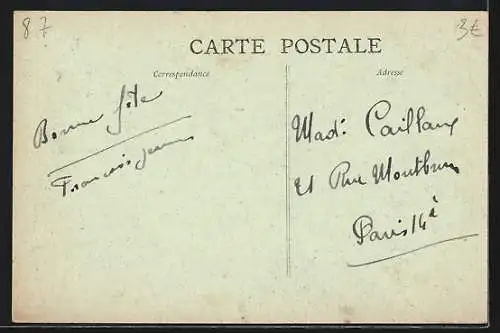 87
3€
CARTE POSTALE
Correspondance
Adresse
Bonne fête
Francois
Mad: Caillaux
21 Rue Montbrun
Paris 14è